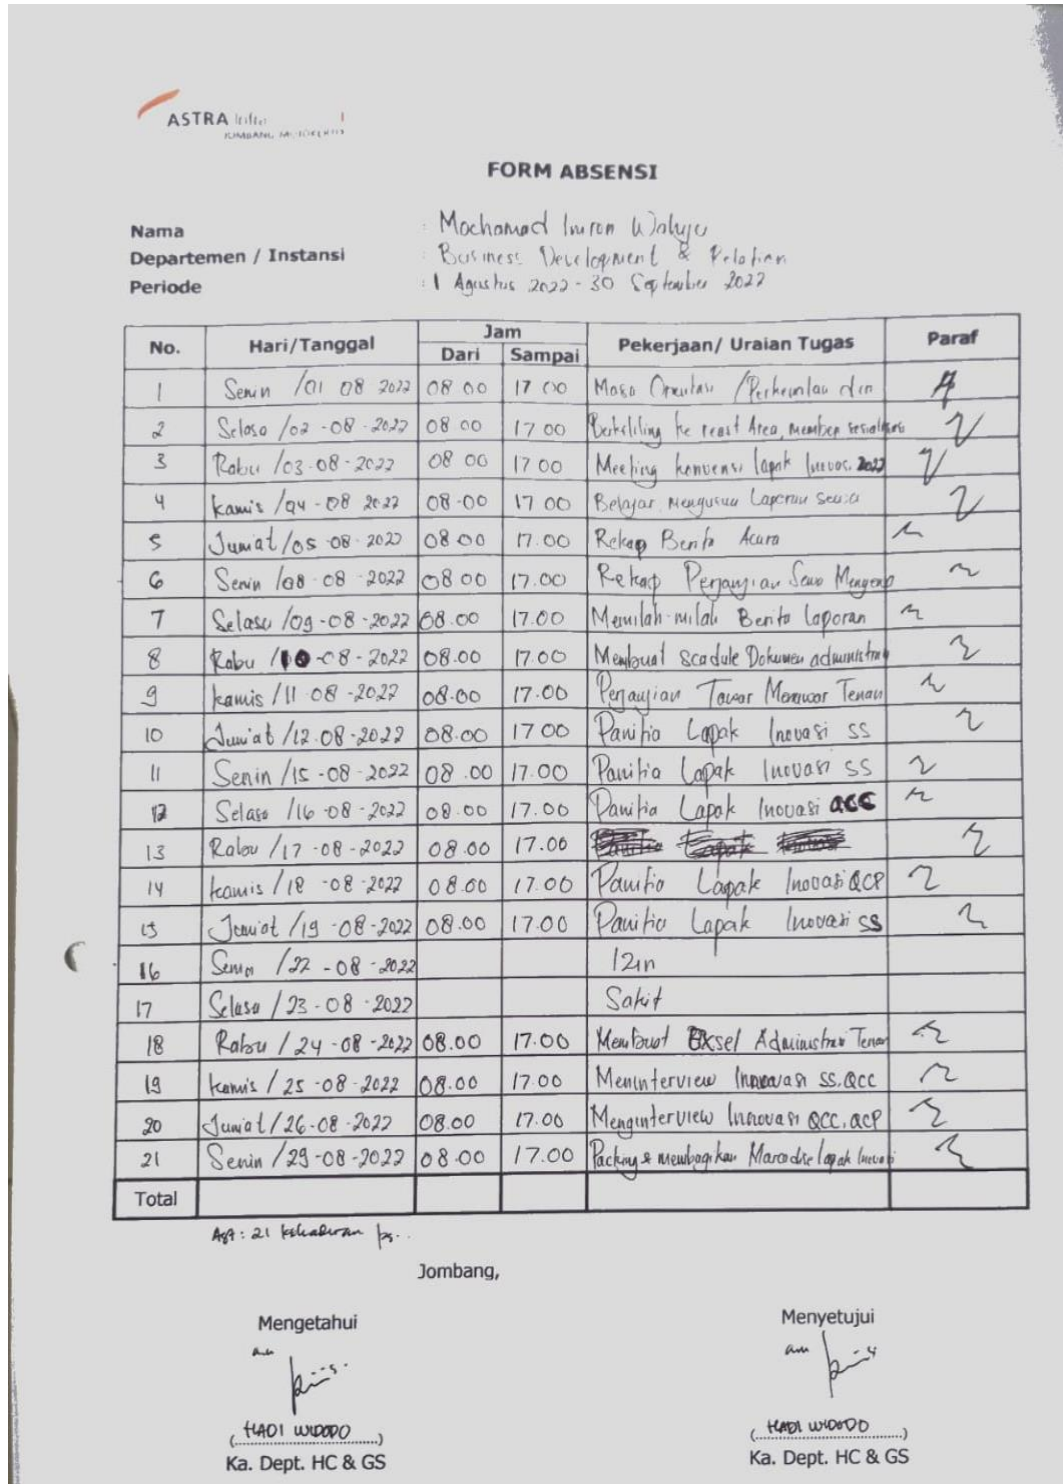 ASTRA Infra
JOMBANG MOJOKERTO
FORM ABSENSI
Nama : Mochamad Imron Wahyu
Departemen / Instansi : Business Development & Relation
Periode : 1 Agustus 2022 - 30 September 2022
No. Hari/Tanggal Jam Pekerjaan/ Uraian Tugas Paraf
Dari Sampai
1 Senin /01 08 2022 08 00 17 00 Masa Orientasi /Perkenalan
2 Selasa /02 -08 -2022 08 00 17 00 Berkeliling ke reast Area, member
3 Rabu /03-08-2022 08 00 17 00 Meeting konvensi lapak Inovas. 2022
4 kamis /04 -08 2022 08-00 17 00 Belajar Laporan
5 Jumiat /05-08-2022 08 00 17.00 Rekap Berita Acara
6 Senin /08-08-2022 08 00 17.00 Rekap Perjanjian Sewa
7 Selasa /09-08-2022 08.00 17.00 Memilah-milah Berita laporan
8 Rabu /10-08-2022 08.00 17.00 Membuat Scadule Dokumen administrasi
9 kamis /11 08 -2022 08.00 17.00 Perjanjian Tawar Menawar Tenan
10 Jumiat /12.08-2022 08.00 17 00 Panitia Lapak Inovasi SS
11 Senin /15 -08-2022 08 .00 17.00 Panitia Lapak Inovasi SS
12 Selasa /16-08-2022 08.00 17.00 Panitia Lapak Inovasi QCC
13 Rabu /17 -08-2022 08.00 17.00
14 kamis /18 -08-2022 08.00 17.00 Panitia Lapak Inovasi QCP
15 Jumiat /19 -08-2022 08.00 17.00 Panitia Lapak Inovasi SS
16 Senin /22 -08-2022 Izin
17 Selasa /23-08-2022 Sakit
18 Rabu /24-08-2022 08.00 17.00 Membuat Exsel Administrasi Tenan
19 kamis /25-08-2022 08.00 17.00 Meninterview SS.QCC
20 Jumiat/26-08-2022 08.00 17.00 Menginterview Innovasi QCC.QCP
21 Senin /29-08-2022 08.00 17.00 Packing & membagikan lapak Inovasi
Total
Agt : 21 kehadiran
Jombang,
Mengetahui Menyetujui
an an
(HADI WIDODO) (HADI WIDODO)
Ka. Dept. HC & GS Ka. Dept. HC & GS